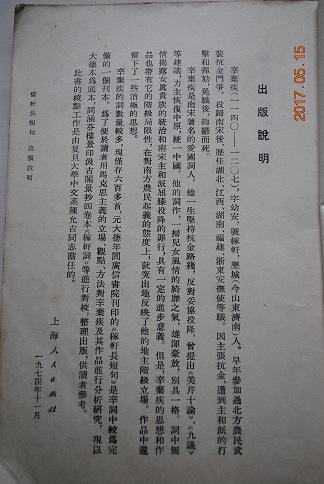 2017.05.15
出版說明
辛棄疾(一一四〇——一二〇七),字幼安,號稼軒,歷城(今山東濟南)人。早年參加過北方農民武
裝抗金鬥爭。投歸南宋後,歷任湖北、江西、湖南、福建、浙東安撫使等職。因主張抗金,遭到主和派的打
擊和彈劾,免職後,抑鬱而死。
辛棄疾是南宋著名的愛國詞人。他一生堅持抗金路綫,反對妥協投降,曾提出《美芹十論》、《九議》
等建議,力主恢復中原,統一中國。他的詞作,一掃兒女風情的綺靡之氣,雄渾豪放,別具一格。詞中無
情揭露女真貴族的統治和南宋主和派屈膝投降的罪行,具有一定的進步意義。但是,辛棄疾的思想和作
品也帶有它的階級局限性,在對南方農民起義的態度上,就突出地反映了他的地主階級立場。作品中還
留下了一些消極的思想。
辛棄疾的詞數量較多,現僅存六百多首,元大德年間廣信書院刊印的《稼軒長短句》是辛詞中較為完
備的一個刊本。為了便於讀者用馬克思主義的立場、觀點、方法對辛棄疾及其作品進行分析研究,現以
大德本為底本,同涵芬樓景印汲古閣景抄四卷本《稼軒詞》等進行對校,整理出版,供讀者參考。
此書的校點工作是由復旦大學中文系陳允吉同志擔任的。
上海人民出版社
一九七四年十一月
稼軒長短句 出版說明